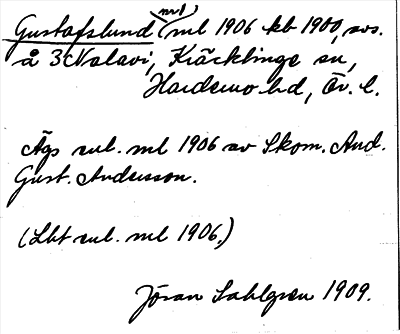 Gustafslund (nr 1) ml 1906 kb 1900, avs.
å 3 Nalavi, Kräcklinge sn,
Hardemo hd, Ör. l.
Ägs enl. ml 1906 av Skom. And.
Gust. Andersson.
(Lht enl. ml 1906.)
Jöran Sahlgren 1909.